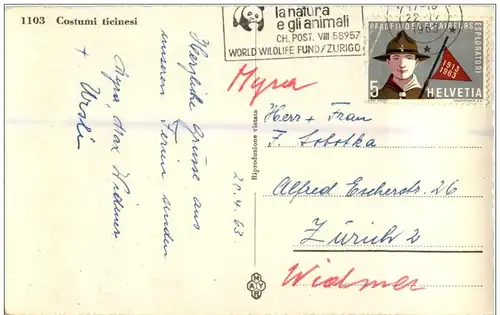 1103 Costumi ticinesi
la natura
e gli animali
CH. POST. VIII 58957
WORLD WILDLIFE FUND/ZURIGO
PFADFINDER ECLAIREURS
ESPLORATORI
1913
1963
5 HELVETIA
Herzliche Grüsse aus
unseren Ferien senden
Myra, Max Widmer
+ Ursli
20.4.63
Riproduzione vietata
MAYR
Myra
Herr + Frau
F. Sobotka
Alfred Escherstr. 26
Zürich 2
Widmer